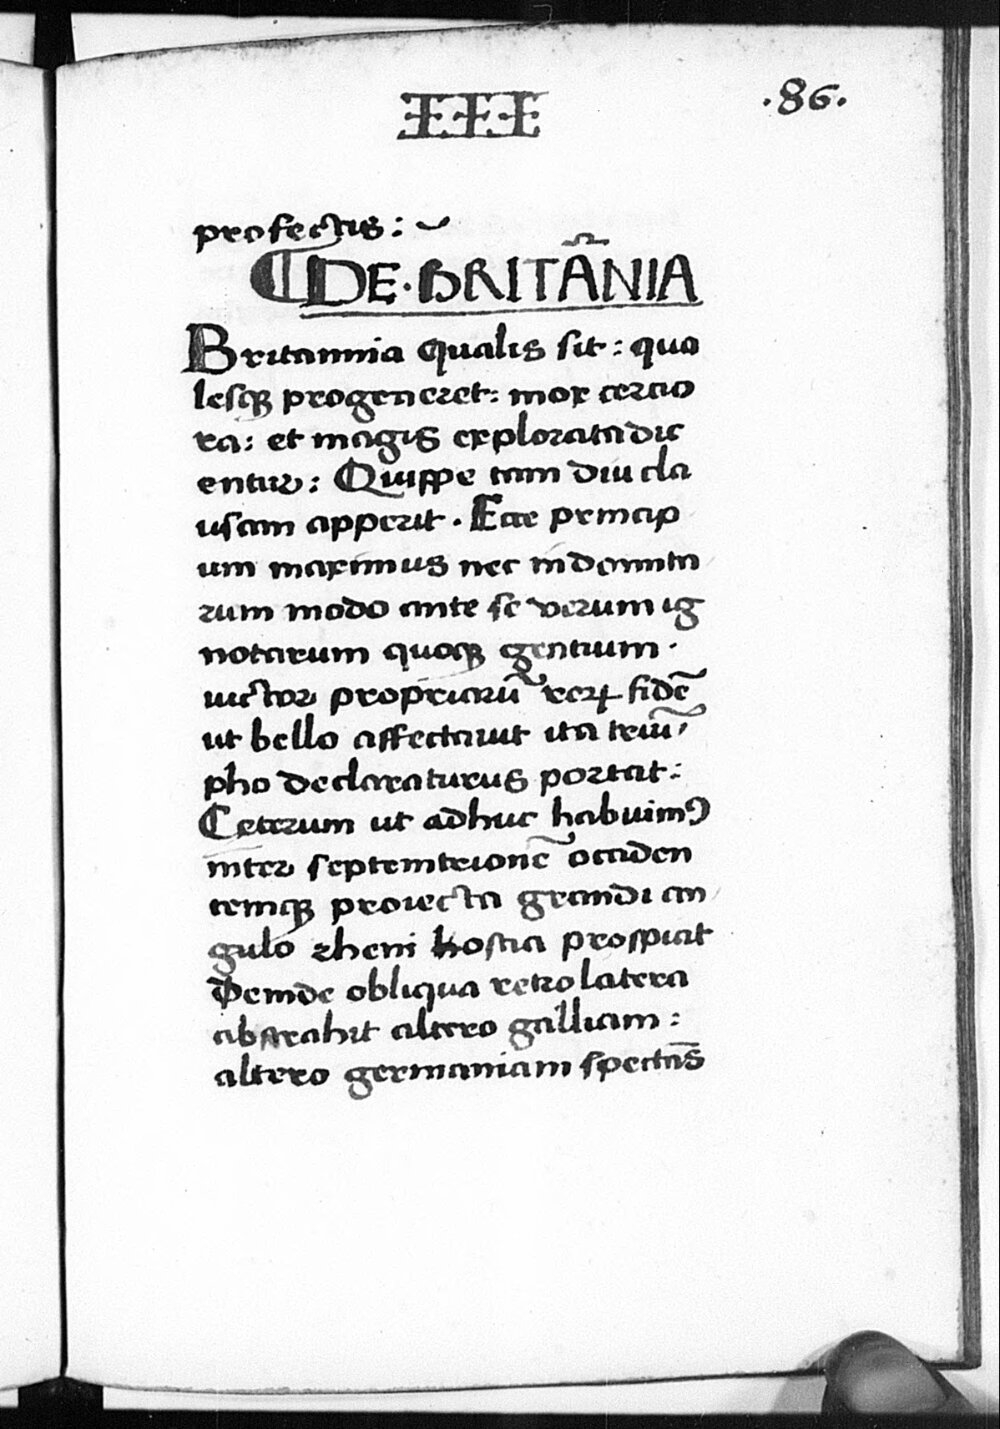 III
.86.
profectus:
DE·BRITÃNIA
Britannia qualis sit: qua
lesqꝫ progeneret: mox certio
ra: et magis explorata dic
entur: Quippe tam diu cla
usam apperit. Ecce princip
um maximus nec indomita
rum modo ante se verum ig
notarum quoqꝫ gentium.
uictor propriarũ rerꝝ fidẽ
ut bello affectauit ita triũ
pho declaraturus portat:
Ceterum ut adhuc habuimꝰ
inter septemtrionẽ occiden
temqꝫ proiecta grandi an
gulo rheni hostia prospicit
Deinde obliqua retro latera
abstrahit altero galliam:
altero germaniam spectãs